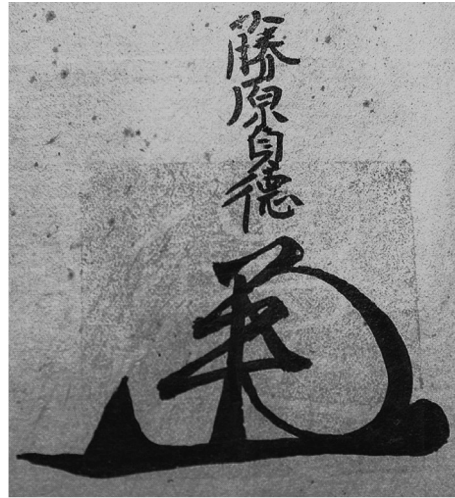 藤原貞徳